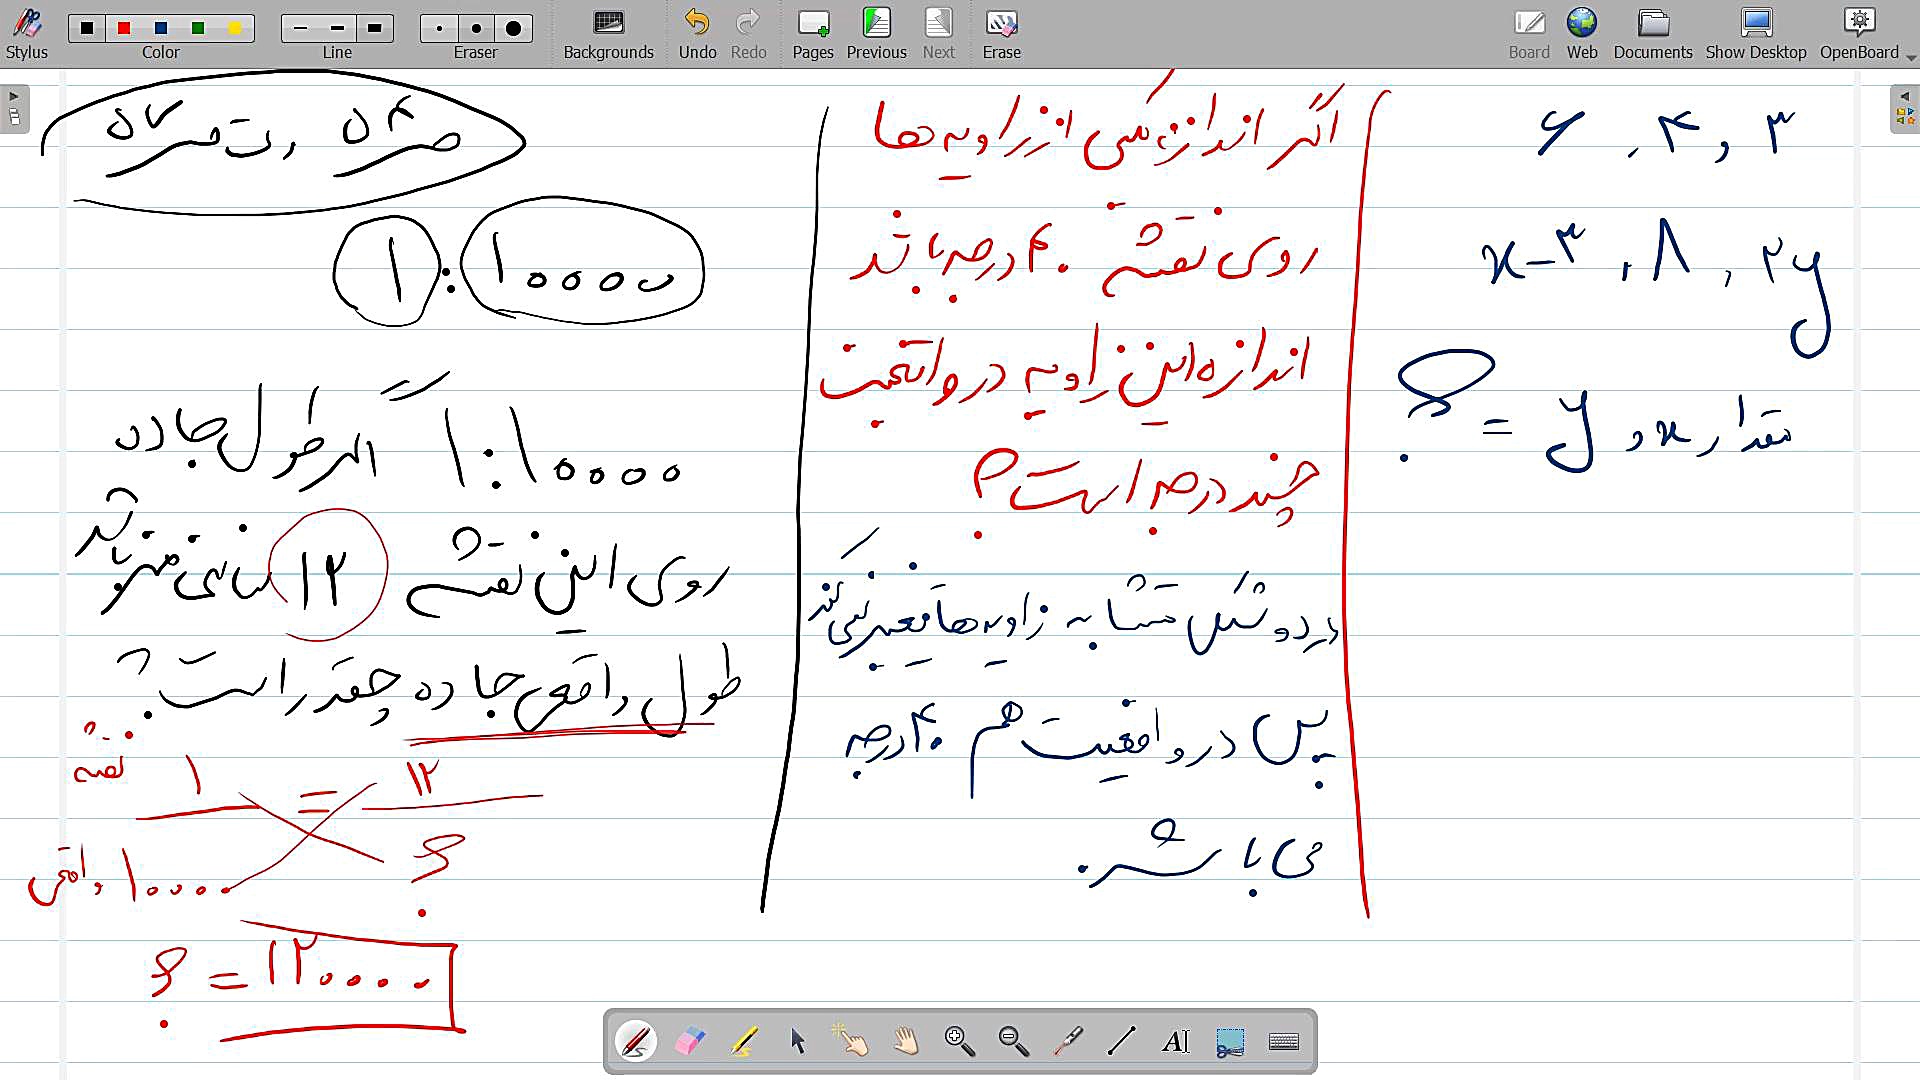 Stylus Color Line Eraser Backgrounds Undo Redo Pages Previous Next Erase Board Web Documents Show Desktop OpenBoard
۶ , ۴ , ۳
x-۳ , ۸ , ۲y
مقدار x و y = ؟
اگر اندازه یکی از زاویه ها
روی نقشه ۴۰ درجه باشد
اندازه این زاویه در واقعیت
چند درجه است؟
در دو شکل متشابه زاویه ها تغییر نمی کند
پس در واقعیت هم ۴۰ درجه
می باشد.
۱ : ۱۰۰۰۰
۱ : ۱۰۰۰۰ اگر طول جاده
روی این نقشه ۱۲ سانتی متر باشد
طول واقعی جاده چقدر است؟
نقشه ۱ = ۱۲
واقعی ۱۰۰۰۰ ؟
؟ = ۱۲۰۰۰۰